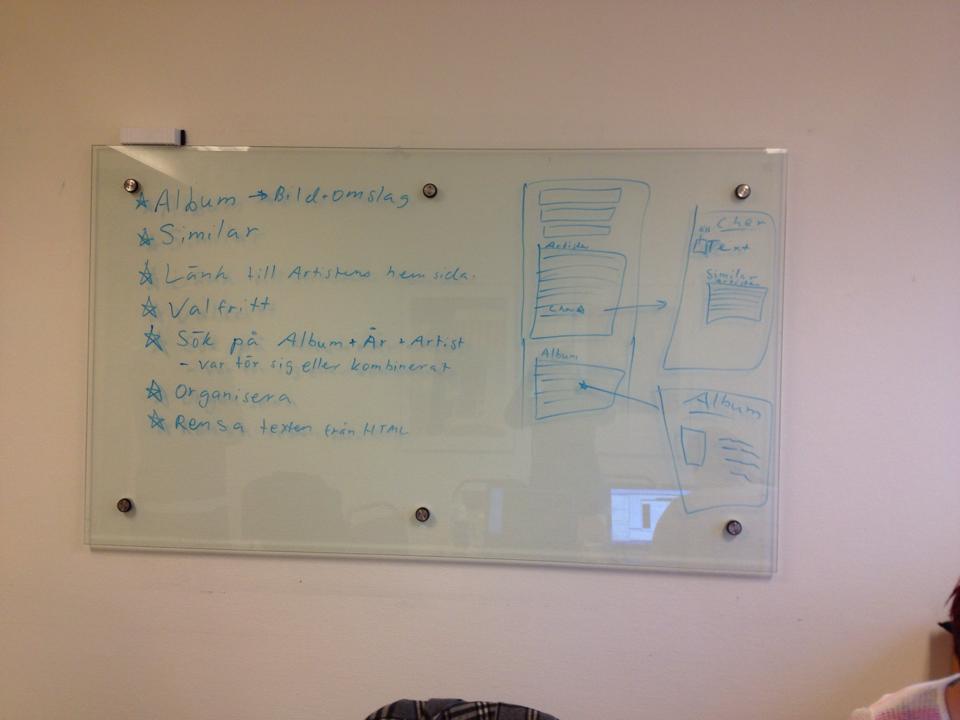 Album → Bild+omslag
Similar
Länk till Artistens hemsida.
Valfritt
Sök på Album + År + Artist
- var för sig eller kombinerat
Organisera
Rensa texten från HTML
Artister
Cher
Album
Cher
Text
Similar
artister
Album